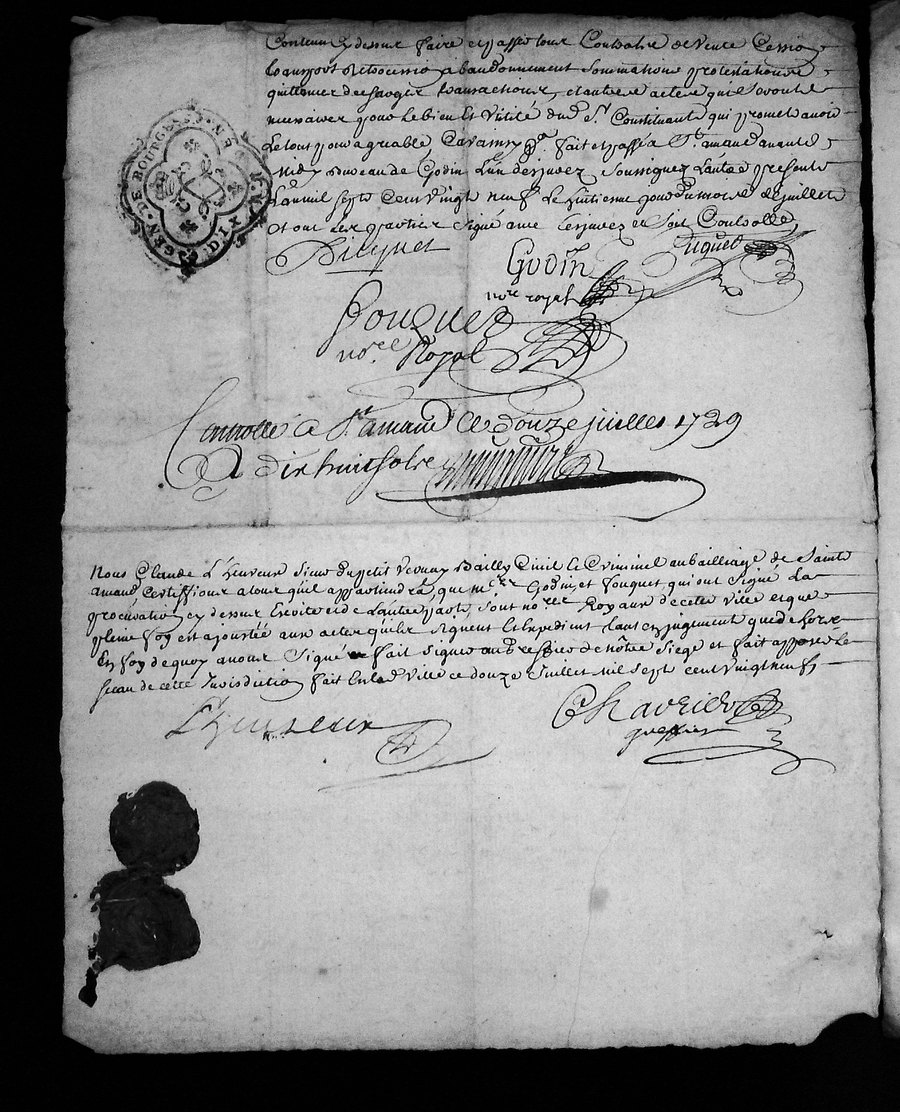 Contenu cy dessus faire et passer tous Contracts de vente Cession
transport Retrocession abandonnement Sommations protestations
quittances descharges transactions, et autres actes qu'il avoutte
necessaires pour le bien et Utilité dud Sr. Constituant qui promet avoir
Le tout pour agreable, Car ainsy &a. fait et passé a St. amand avant
midy Bureau de Godin L'un des jurez Soussignez L'autre present
L'an mil sept Cent vingt neuf Le huitieme jour du mois de juillet
et ont les parties signé avec les jurez et Soit Controllé
GEN. DE BOURGES
DIX
Godin
nore royal
fuquet
fouquet
nore. Royal
Controllé a St. amand Le douze juillet 1729
R dix huit sols
Nous Claude L'heureux Sieur Du petit Vernay Bailly Civil et Criminel au bailliage de Saint
amand Certiffions a tous qu'il appartiendra, que mes. Godin, et fouquet qui ont Signé La
procuration cy dessus Escritte et de L'autre part, sont nores Royaux de cette Ville et que
pleine foy est ajoustée aux actes qu'ils Signent et Expedient tant en jugement que dehors
En foy de quoy avons Signé fait signer au greffier de nôtre Siege et fait apposer le
sceau de cette Jurisdiction fait en lad Ville ce douze Juillet mil sept cent vingt neuf
L'heureux
greffier